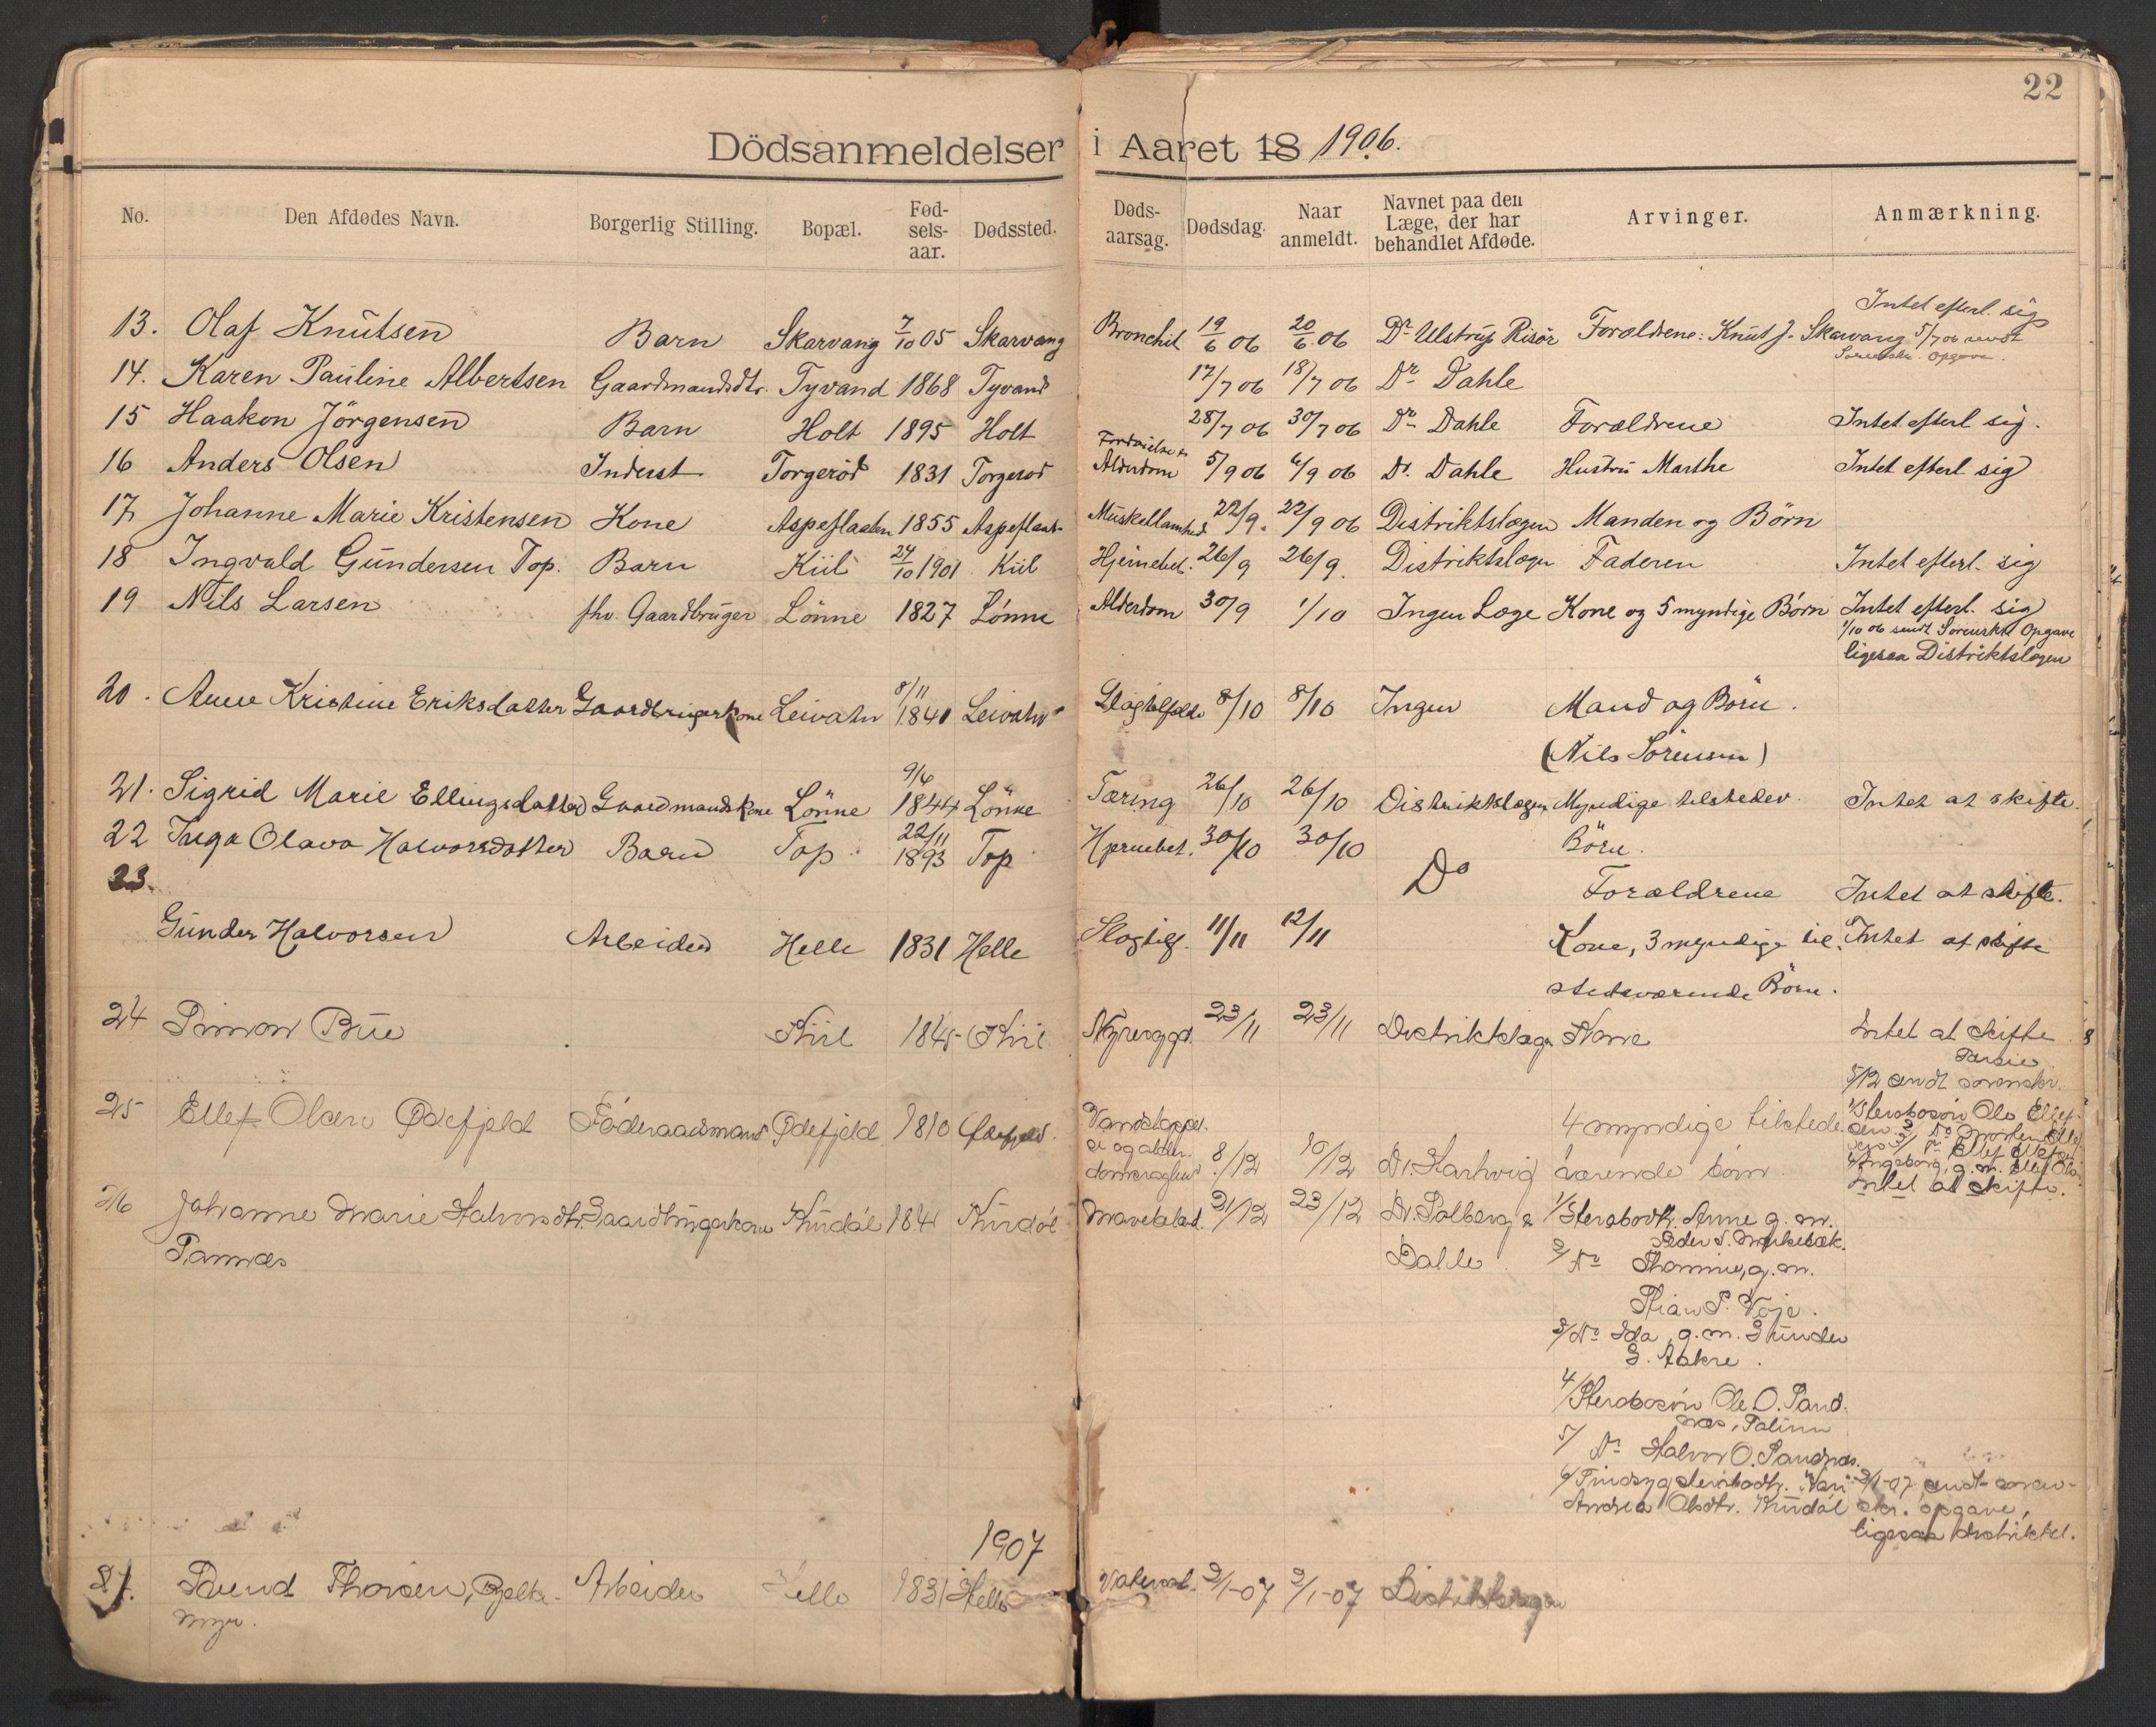 22
Dödsanmeldelser i Aaret 18 1906.
No. Den Afdødes Navn. Borgerlig Stilling. Bopæl. Fød-sels-aar. Dødssted. Døds-aarsag. Dødsdag. Naar anmeldt. Navnet paa den Læge, der har behandlet Afdøde. Arvinger. Anmærkning.
Intet efterl. sig
13. Olaf Knutsen Barn Skarvang 7/10 05 Skarvang Bronchit 19/6 06 20/6 06 Dr Ulstrup Risør Forældrene: Knut J. Skarvang 5/7 06 sendt
Sorenskr. Opgave.
14. Karen Pauline Albertsen Gaardmandsdtr. Tyvand 1868 Tyvand 17/7 06 18/7 06 Dr Dahle
15 Haakon Jörgensen Barn Holt 1895 Holt 28/7 06 30/7 06 Dr Dahle Forældrene Intet efterl sig.
16 Anders Olsen Inderst Torgeröd 1831 Torgerød Alderdom 5/9 06 6/9 06 Dr. Dahle Hustru Marthe Intet efterl sig
17 Johanne Marie Kristensen Kone Aspeflaaten 1855 Aspeflaat. Muskellamhed 22/9. 22/9 06 Distriktslægen Manden og Börn
18 Ingvald Gundersen Top. Barn Kiil 24/10 1901 Kiil Hjernebet. 26/9 26/9. Distriktslægen Faderen Intet efterl. sig
19 Nils Larsen fhv. Gaardbruger Lönne 1827 Lönne Alderdom 30/9 1/10 Ingen Læge Kone og 5 myndige Börn Intet efterl. sig
1/10 06 sendt Sorenskr Opgave
ligesaa Distriktslægen
20. Anne Kristine Eriksdatter Gaardbrugerkone Leivatn 8/11 1841 Leivatn Slagtilfælde 8/10 8/10 Ingen Mand og Börn.
(Nils Sörensen)
21. Sigrid Marie Ellingsdatter Gaardmandskone Lönne 9/6 1844 Lönne Tæring 26/10 26/10 Distriktslægen Myndige tilstedev. Intet at skifte.
Börn.
22 Inga Olava Halvorsdatter Barn Top 22/11 1893 Top Hjernebet. 30/10 30/10 Do Forældrene Intet at skifte.
23.
Gunder Halvorsen Arbeider Helle 1831 Helle Slagtilf. 11/11 12/11 Kone, 3 myndige til. Intet at skifte
stedeværende Börn.
24 Simon Bue Kiil 1845 Kiil 23/11 23/11 Distriktslæge Kone Intet at skifte
5/12 sendt sorenskr.
25 Ellef Olsen Ødefjeld Föderaadsmand Ødefjeld 1810 Ødefjeld. 8/12 10/12 Dr. Hartvig 4 myndige tilstede
værende börn
1/ Stervbosön Ole Ellef-
sen 2/ Do Morten Ellef
sen 3/ Do Ellef Ellefsen
4/ Ingeborg, g.m. Ellef Ols.
Intet at skifte.
26 Johanne Marie Halvorsdtr. Gaardbrugerkone Kundöl 1841 Kundöl Mavekat. 21/12 23/12 Dr. Solberg & 1/ Stervbodtr. Anne g.m.
Sannæs Dahle 2/ Do Thomine, g.m.
Stian P. Voje.
3/ Do Ida, g.m. Gunder
G. Aakre.
4/ Stervbosön Ole O. Sand.
næs,
5/ Do Halvor O. Sandnæs.
6/ Sindsyg stervbodtr. 2/1-07 sendt soren-
Andrea Olsdtr. Kundöl skr. opgave,
ligesaa distriktsl.
1907
27. Svend Thorsen, Arbeider Helle 1831 Helle 2/1-07 2/1-07 Distriktslægen
myr.